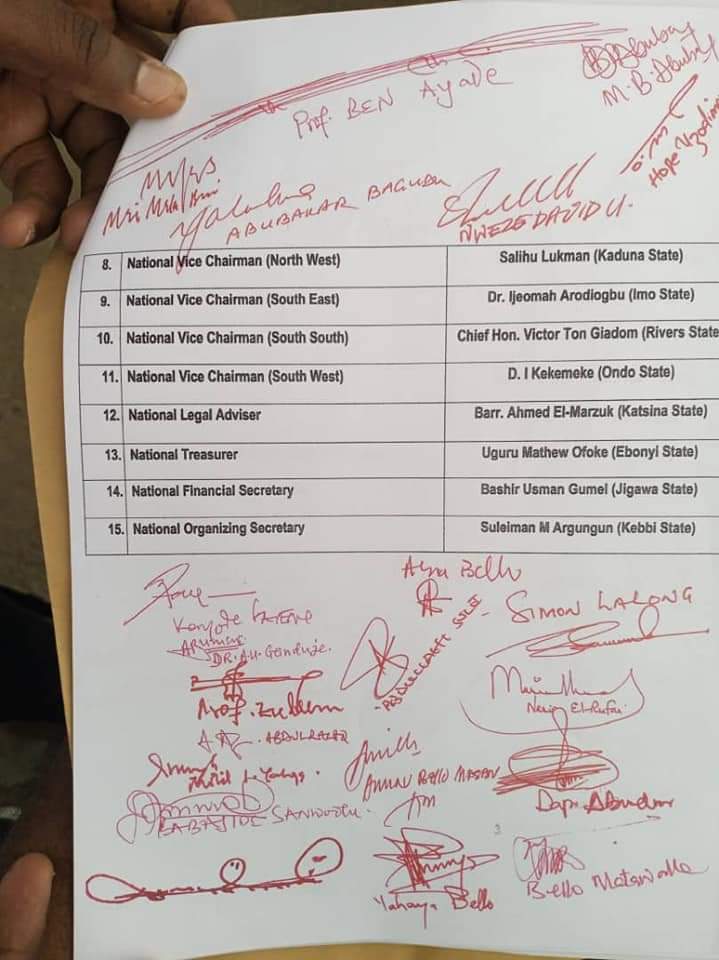 Prof. BEN Ayade
M. B. Abubakar
Hope Uzodimma
ABUBAKAR BAGUDU
NWEZE DAVID U.
8. National Vice Chairman (North West) Salihu Lukman (Kaduna State)
9. National Vice Chairman (South East) Dr. Ijeomah Arodiogbu (Imo State)
10. National Vice Chairman (South South) Chief Hon. Victor Ton Giadom (Rivers State
11. National Vice Chairman (South West) D. I Kekemeke (Ondo State)
12. National Legal Adviser Barr. Ahmed El-Marzuk (Katsina State)
13. National Treasurer Uguru Mathew Ofoke (Ebonyi State)
14. National Financial Secretary Bashir Usman Gumel (Jigawa State)
15. National Organizing Secretary Suleiman M Argungun (Kebbi State)
Bello
SIMON LALONG
DR. A.U. Ganduje.
ABDULLAHI SULE
Prof. Zulum
Nasir El-Rufai
ABDULRAZAK
AMINU BELLO MASARI
BABAJIDE SANWOOLU.
Dapo Abiodun
Yahaya Bello
Bello Matawalle